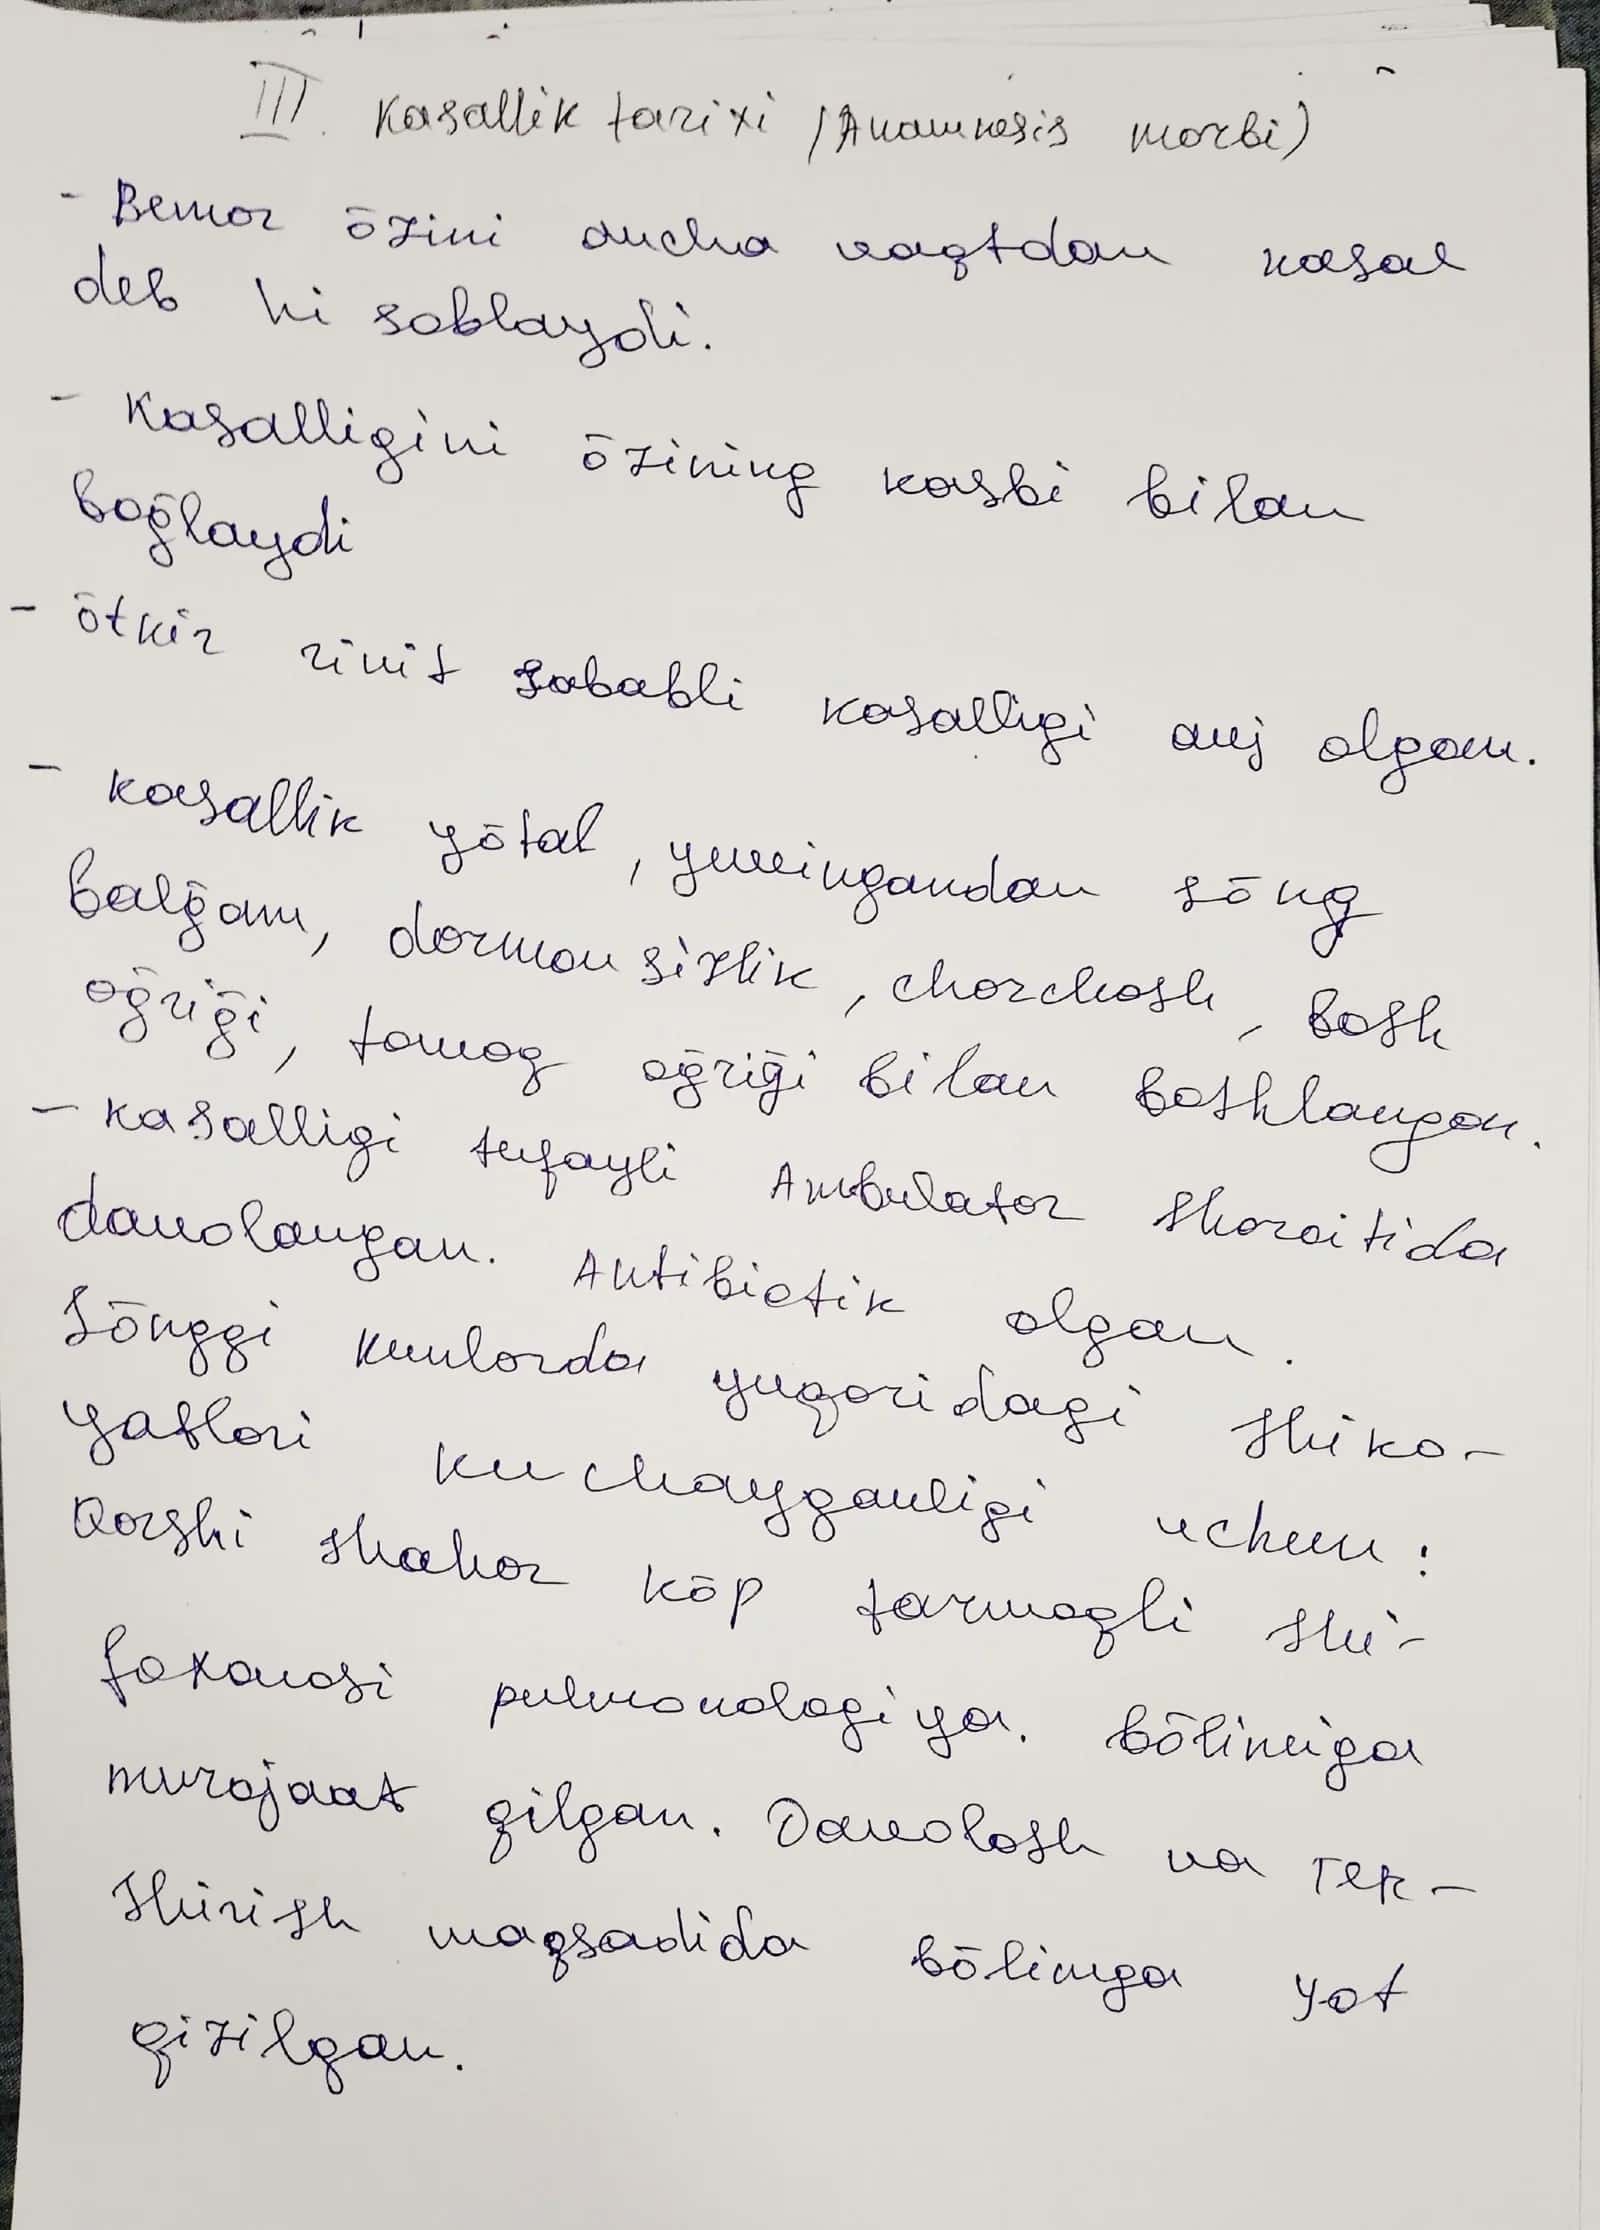 III. Kasallik tarixi (Anamnesis morbi)
- Bemor ōzini ancha vaqtdan kasal
deb hisoblaydi.
- Kasalligini ōzining kasbi bilan
boḡlaydi
- ōtkir rinit sababli kasalligi avj olgan.
- kasallik yōtal, yuvingandan sōng
balḡam, darmonsizlik, charchash, bosh
oḡriḡi, tomoq oḡriḡi bilan boshlangan.
- kasalligi tufayli Ambulator sharoitida
davolangan. Antibiotik olgan.
Sōnggi kunlarda yuqoridagi shiko-
yatlari kuchayganligi uchun:
Qarshi shahar kōp tarmoqli shi-
faxonasi pulmonologiya. bōlimiga
murojaat qilgan. Davolash va tek-
shirish maqsadida bōlimga yot
qizilgan.